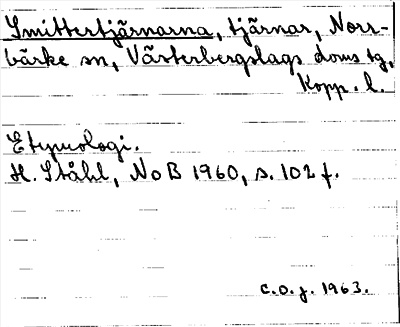 Smittertjärnarna, tjärnar, Norr-
bärke sn, Västerbergslags doms tg,
Kopp. l.
Etymologi.
H. Ståhl, NoB 1960, s. 102 f.
C.O.J. 1963.